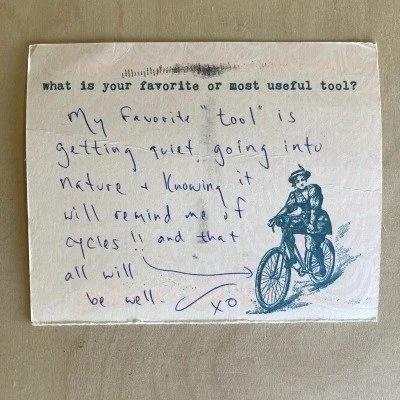 what is your favorite or most useful tool?
My favorite "tool" is
getting quiet, going into
nature + knowing it
will remind me of
cycles !! and that
all will
be well.
xo